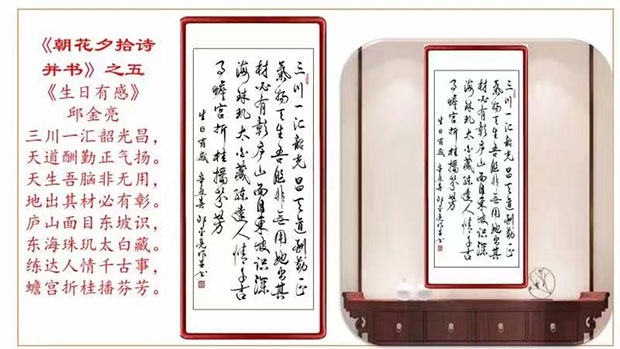 《朝花夕拾诗
并书》之五
《生日有感》
邱金亮
三川一汇韶光昌，
天道酬勤正气扬。
天生吾脑非无用，
地出其材必有彰。
庐山面目东坡识，
东海珠玑太白藏。
练达人情千古事，
蟾宫折桂播芬芳。
三川一汇韶光昌天道酬勤正
氣扬天生吾能非無用地出其
材必有彰庐山面目東坡识深
海珠玑太白藏练達人情千古
事蟾宫折桂播芬芳
生日有感 辛丑 邱金亮作并书
三川一汇韶光昌天道酬勤正
氣扬天生吾能非無用地出其
材必有彰庐山面目東坡识深
海珠玑太白藏练達人情千古
事蟾宫折桂播芬芳
生日有感 辛丑 邱金亮作并书